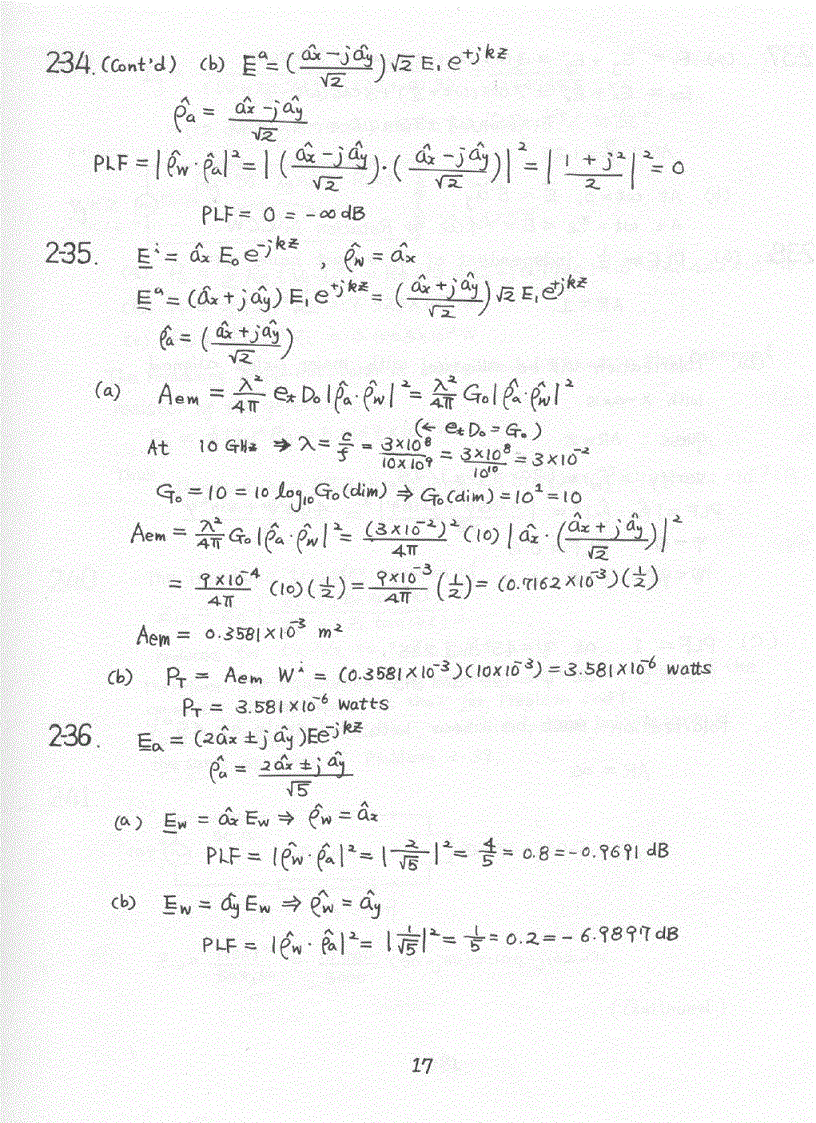 2-34. (Cont'd) (b) E^a = ( (âx - jây) / √2 ) √2 E₁ e^{+jkz}
ρ̂a = (âx - jây) / √2
PLF = |ρ̂w · ρ̂a|² = | ( (âx - jây) / √2 ) · ( (âx - jây) / √2 ) |² = | (1 + j²) / 2 |² = 0
PLF = 0 = -∞ dB
2-35. E^i = âx E₀ e^{-jkz} , ρ̂w = âx
E^a = (âx + jây) E₁ e^{+jkz} = ( (âx + jây) / √2 ) √2 E₁ e^{+jkz}
ρ̂a = ( (âx + jây) / √2 )
(a) Aem = λ²/4π et D₀ |ρ̂a · ρ̂w|² = λ²/4π G₀ |ρ̂a · ρ̂w|²
(← et D₀ = G₀)
At 10 GHz ⇒ λ = c/f = 3×10⁸ / 10×10⁹ = 3×10⁸ / 10¹⁰ = 3×10⁻²
G₀ = 10 = 10 log₁₀ G₀(dim) ⇒ G₀(dim) = 10¹ = 10
Aem = λ²/4π G₀ |ρ̂a · ρ̂w|² = (3×10⁻²)² / 4π (10) | âx · ( (âx + jây) / √2 ) |²
= 9×10⁻⁴ / 4π (10)(1/2) = 9×10⁻³ / 4π (1/2) = (0.7162×10⁻³)(1/2)
Aem = 0.3581×10⁻³ m²
(b) P_T = Aem W^i = (0.3581×10⁻³)(10×10⁻³) = 3.581×10⁻⁶ watts
P_T = 3.581×10⁻⁶ watts
2-36. Ea = (2âx ± jây)Ee^{-jkz}
ρ̂a = (2âx ± jây) / √5
(a) Ew = âx Ew ⇒ ρ̂w = âx
PLF = |ρ̂w · ρ̂a|² = | 2/√5 |² = 4/5 = 0.8 = -0.9691 dB
(b) Ew = ây Ew ⇒ ρ̂w = ây
PLF = |ρ̂w · ρ̂a|² = | 1/√5 |² = 1/5 = 0.2 = -6.9897 dB
17